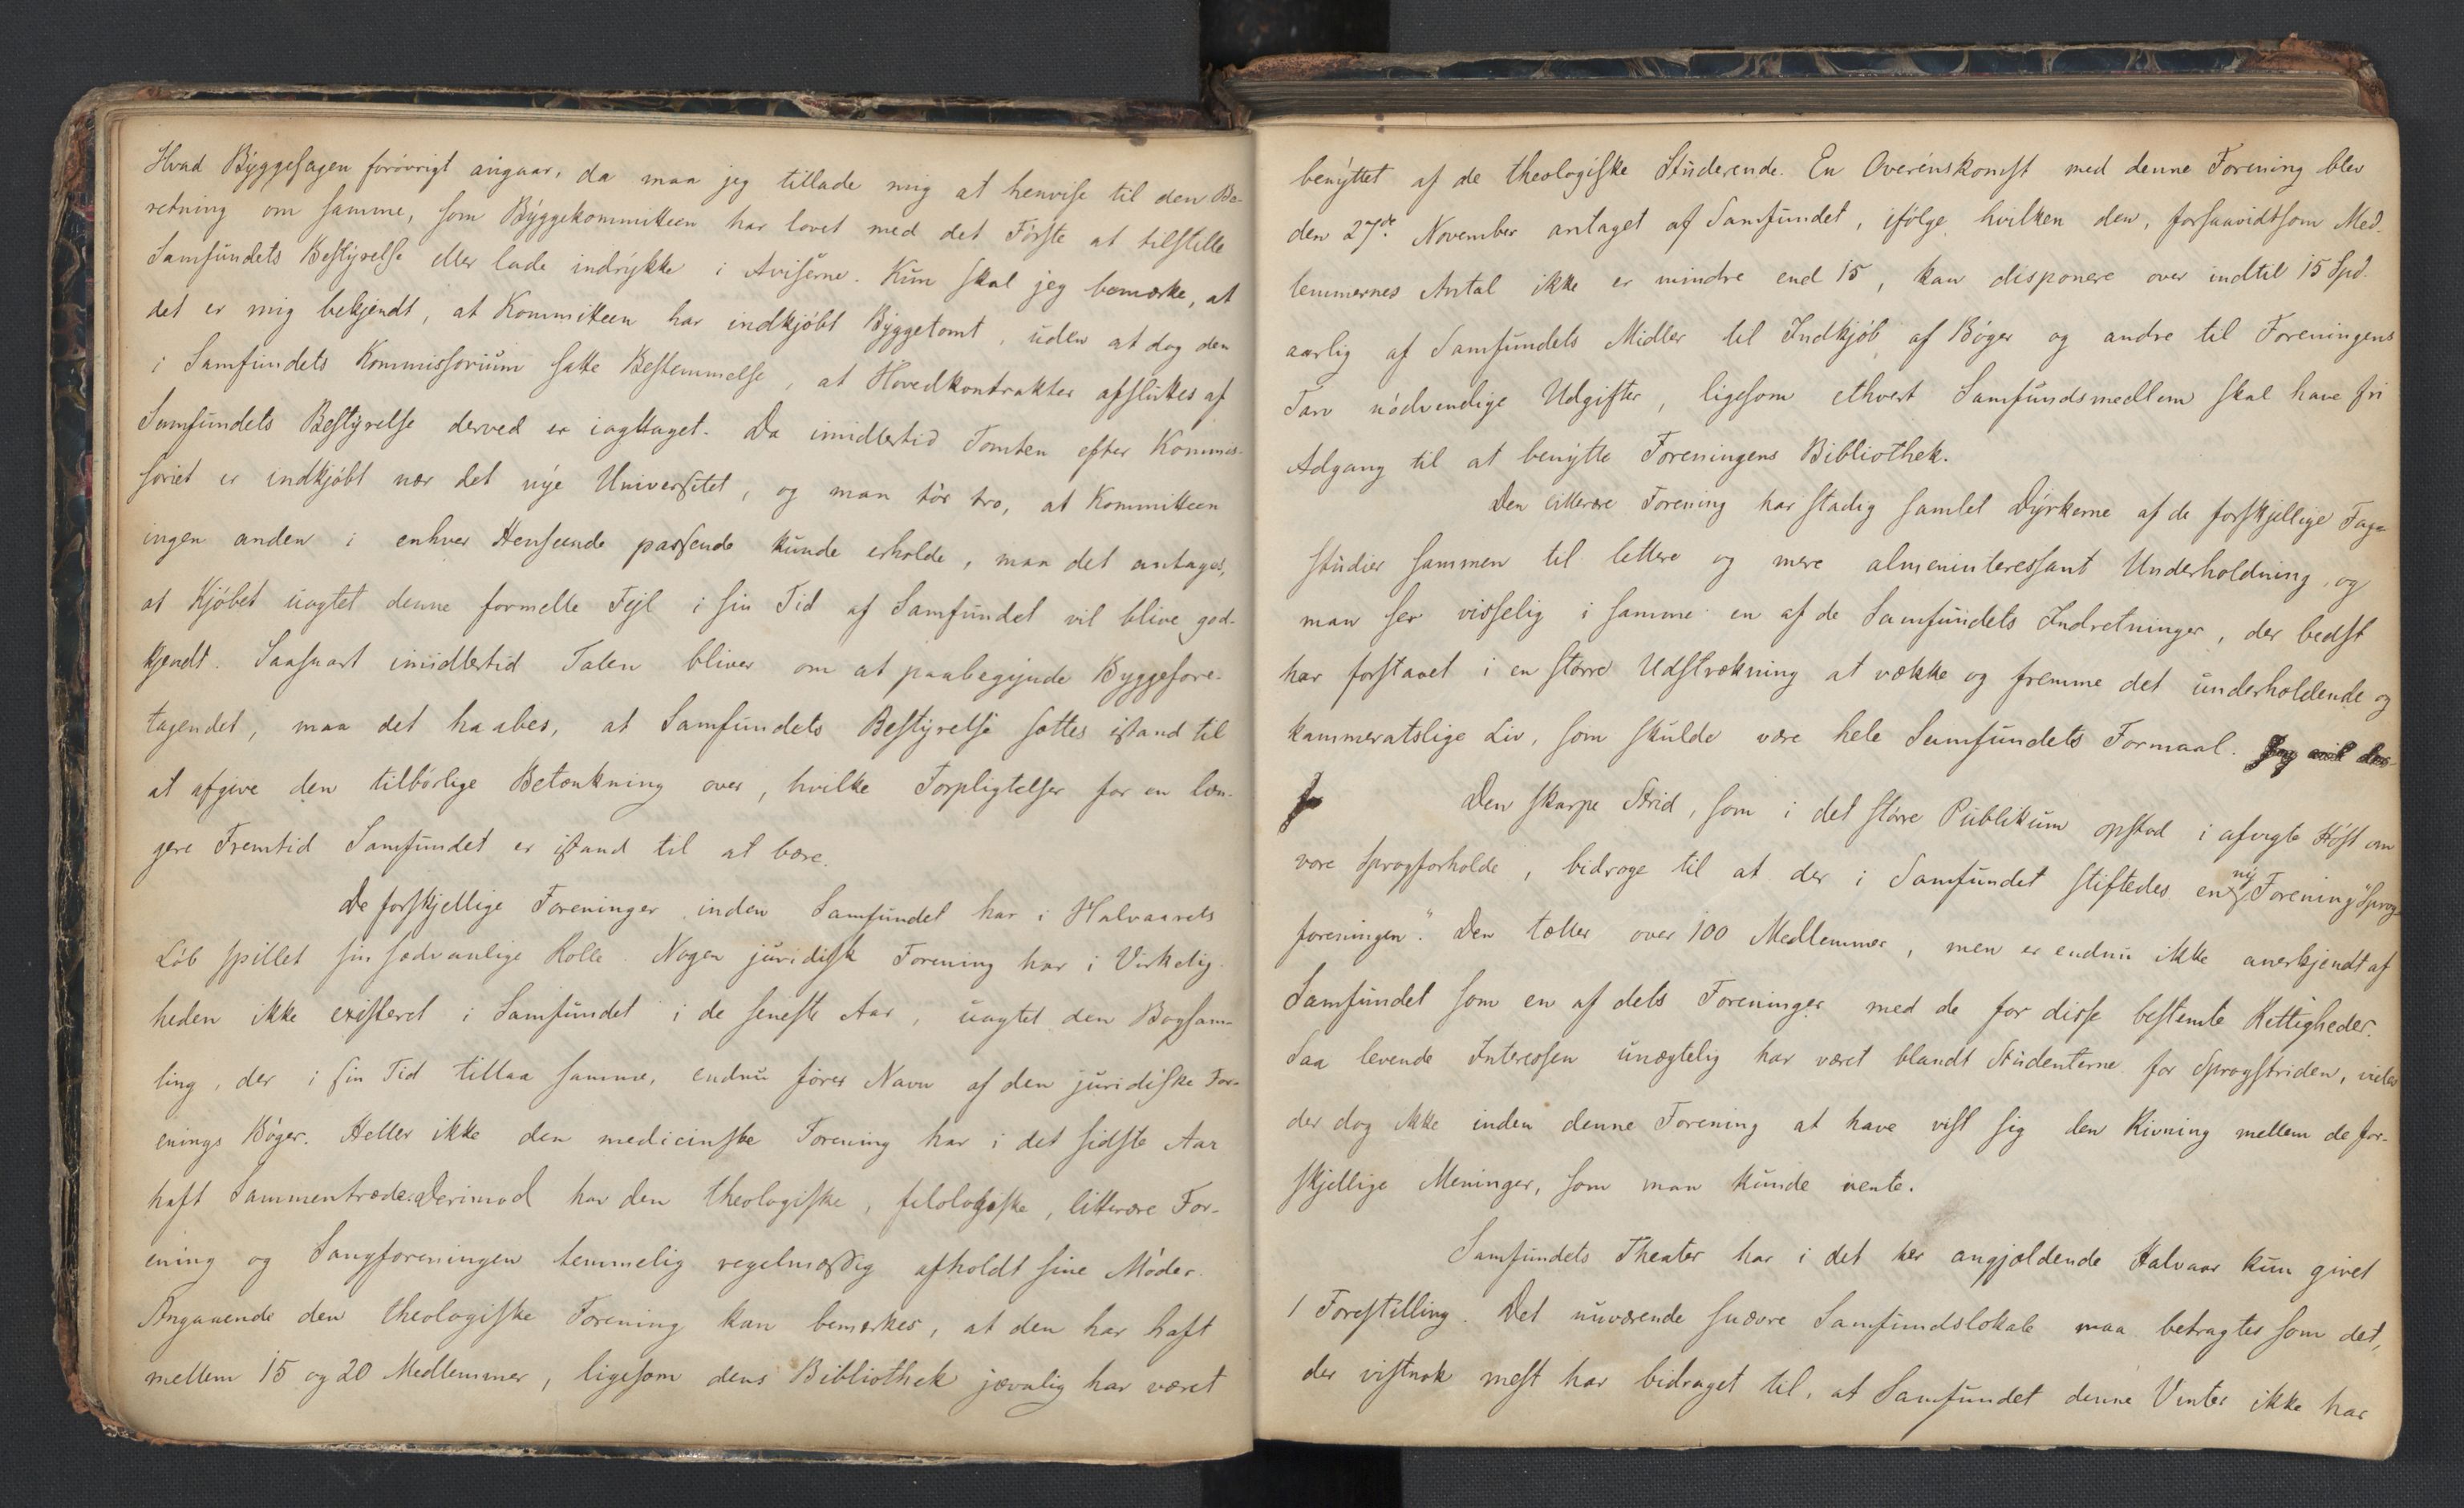 Hvad Byggesagen forövrigt angaar, da maa jeg tillade mig at henvise til den Be-
retning om samme, som Byggekommitteen har lovet med det Förste at tilstille
Samfundets Bestyrelse eller lade indrykke i Aviserne. Kun skal jeg bemærke, at
det er mig bekjendt, at Kommitteen har indkjöbt Byggetomt, uden at dog den
i Samfundets Kommissorium satte Bestemmelse, at Hovedkontrakter afsluttes af
Samfundets Bestyrelse derved er iagttaget. Da imidlertid Tomten efter Kommis-
soriet er indkjöbt nær det nye Universitet, og man tör tro, at Kommitteen
ingen anden i enhver Henseende passende kunde erholde, maa det antages,
at Kjöbet uagtet denne formelle Fejl i sin Tid af Samfundet vil blive god-
kjendt. Saasnart imidlertid Talen bliver om at paabegynde Byggefore-
tagendet, maa det haabes, at Samfundets Bestyrelse sættes istand til
at afgive den tilbörlige Betænkning over, hvilke Forpligtelser for en læn-
gere Fremtid Samfundet er istand til at bære.
De forskjellige Foreninger inden Samfundet har i Halvaarets
Löb spillet sin sædvanlige Rolle. Nogen juridisk Forening har i Virkelig-
heden ikke existeret i Samfundet i de seneste Aar, uagtet den Bogsam-
ling, der i sin Tid tillaa samme, endnu förer Navn af den juridiske For-
enings Böger. Heller ikke den medicinske Forening har i det sidste Aar
haft Sammentræde. Derimod har den theologiske, filologiske, litterære For-
ening og Sangforeningen temmelig regelmæssig afholdt sine Möder.
Angaaende den theologiske Forening kan bemærkes, at den har haft
mellem 15 og 20 Medlemmer, ligesom dens Bibliothek jævnlig har været
benyttet af de theologiske Studerende. En Overenskomst med denne Forening blev
den 27de November antaget af Samfundet, ifölge hvilken den, forsaavidtsom Med-
lemmernes Antal ikke er mindre end 15, kan disponere over indtil 15 Spd.
aarlig af Samfundets Midler til Indkjöb af Böger og andre til Foreningens
Tarv nödvendige Udgifter, ligesom ethvert Samfundsmedlem skal have fri
Adgang til at benytte Foreningens Bibliothek.
Den litterære Forening har stadig samlet Dyrkerne af de forskjellige Fage
studier sammen til lettere og mere almeninteressant Underholdning, og
man ser visselig i samme en af de Samfundets Indretninger, der bedst
har forstaaet i en större Udstrækning at vække og fremme det underholdende og
kammeratslige Liv, som skulde være hele Samfundets Formaal. Jeg vil der-
Den skarpe Strid, som i det större Publikum opstod i afvigte Höst om
vore Sprogforholde, bidroge til at der i Samfundet stiftedes en ny Forening "Sprog-
foreningen". Den tæller over 100 Medlemmer, men er endnu ikke anerkjendt af
Samfundet som en af dets Foreninger med de for disse bestemte Rettigheder.
Saa levende Interessen unægtelig har været blandt Studenterne for Sprogstriden, vides
der dog ikke inden denne Forening at have vist sig den Rivning mellem de for-
skjellige Meninger, som man kunde vente.
Samfundets Theater har i det her angjældende Halvaar kun givet
1 Forestilling. Det nuværende snævre Samfundslokale maa betragtes som det,
der vistnok mest har bidraget til, at Samfundet denne Vinter ikke har